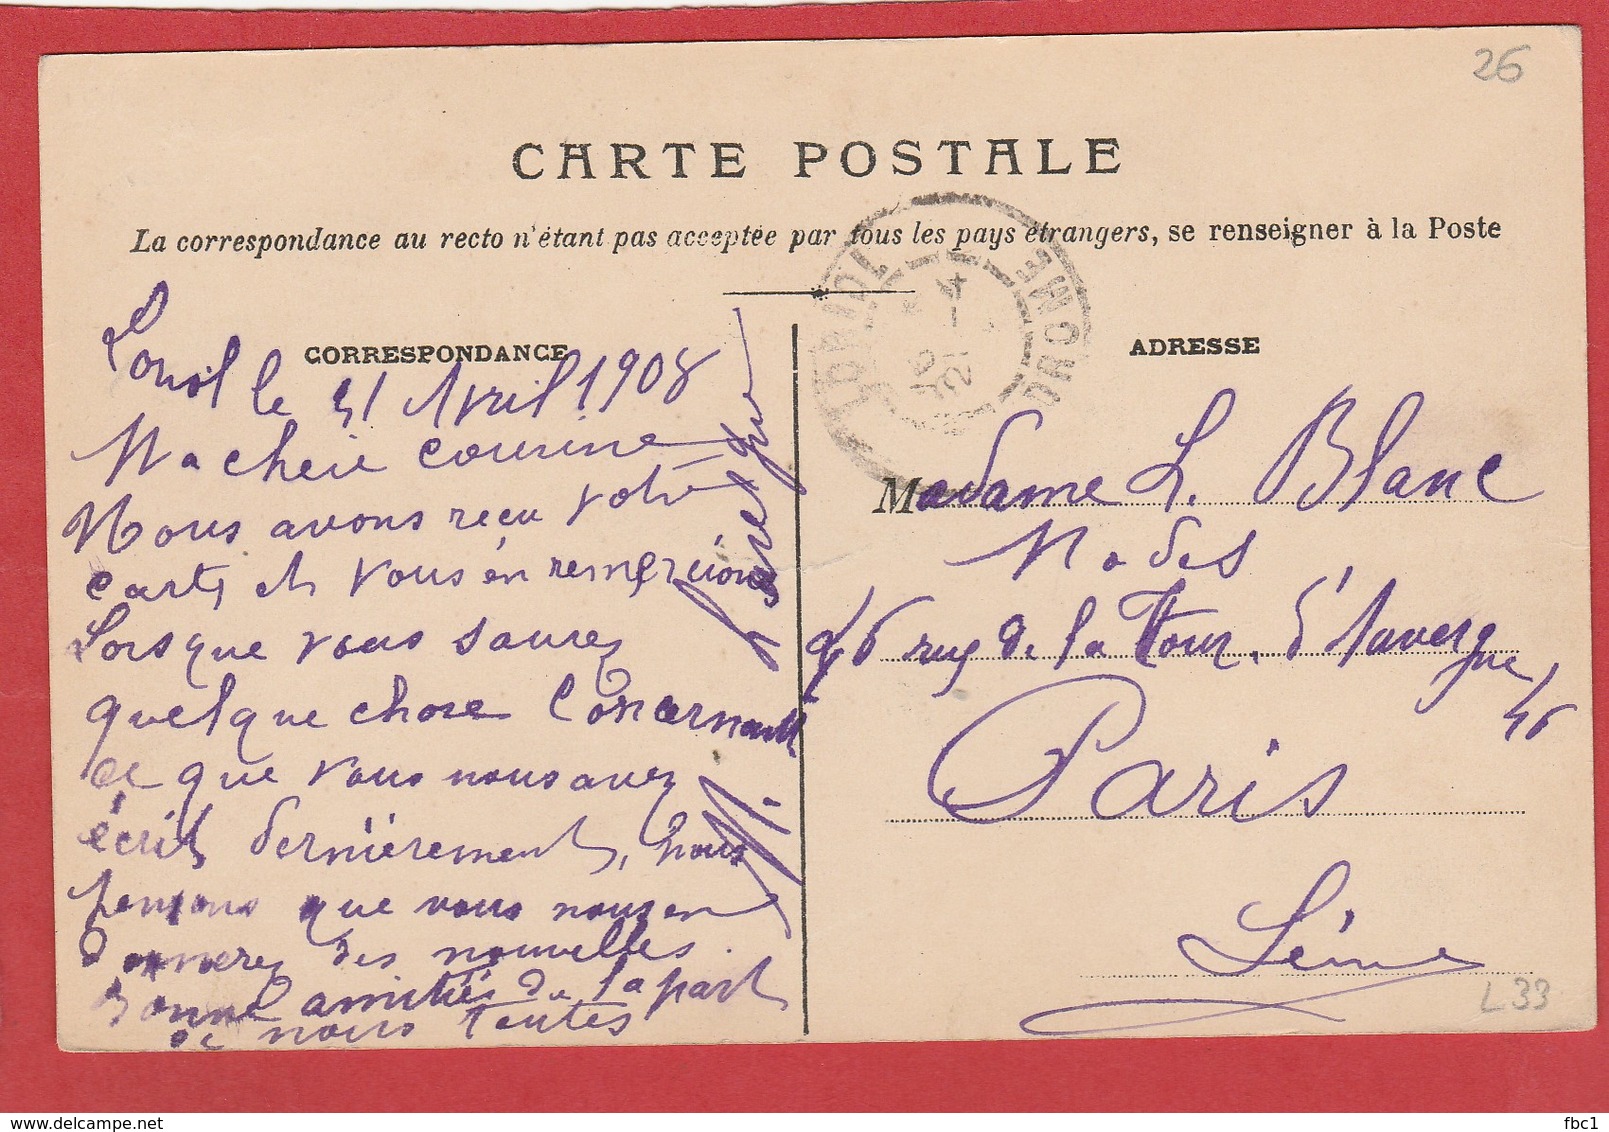 26
CARTE POSTALE
La correspondance au recto n'étant pas acceptée par tous les pays étrangers, se renseigner à la Poste
CORRESPONDANCE
Loriol le 21 Avril 1908
Ma chère cousine
Nous avons reçu votre
carte et vous en remercions
Lorsque vous saurez
quelque chose Concernant
ce que vous nous avez
écrit dernièrement, nous
pensons que vous nous en
donnerez des nouvelles.
Bonne amitiés de la part
de nous toutes
LORIOL
DROME
21 - 4
08
ADRESSE
Madame L. Blanc
Modes
46 rue de la Tour. d'Auvergne
46
Paris
Séine
L33
fbc1